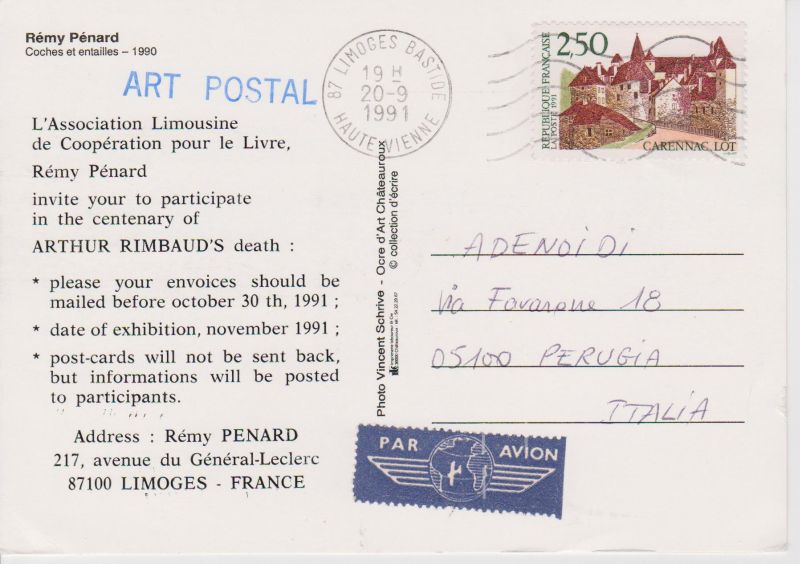 Rémy Pénard
Coches et entailles – 1990
ART POSTAL
L'Association Limousine
de Coopération pour le Livre,
Rémy Pénard
invite your to participate
in the centenary of
ARTHUR RIMBAUD'S death :
* please your envoices should be
mailed before october 30 th, 1991 ;
* date of exhibition, november 1991 ;
* post-cards will not be sent back,
but informations will be posted
to participants.
Address : Rémy PENARD
217, avenue du Général-Leclerc
87100 LIMOGES - FRANCE
87 LIMOGES BASTIDE
19 H
20-9
1991
HAUTE VIENNE
Photo Vincent Schrive - Ocre d'Art Châteauroux
© collection d'écrire
RÉPUBLIQUE FRANÇAISE
LA POSTE 1991
2,50
CARENNAC, LOT
ADENOIDI
Via Favarone 18
05100 PERUGIA
ITALIA
PAR AVION